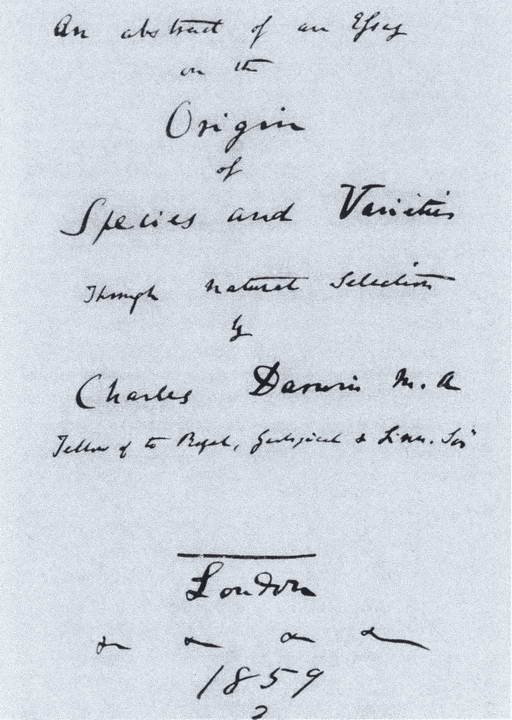 An abstract of an Essay
on the
Origin
of
Species and Varieties
Through natural Selection
by
Charles Darwin M.A
Fellow of the Royal, Geological & Linn. Soc
London
& & & &
1859
2